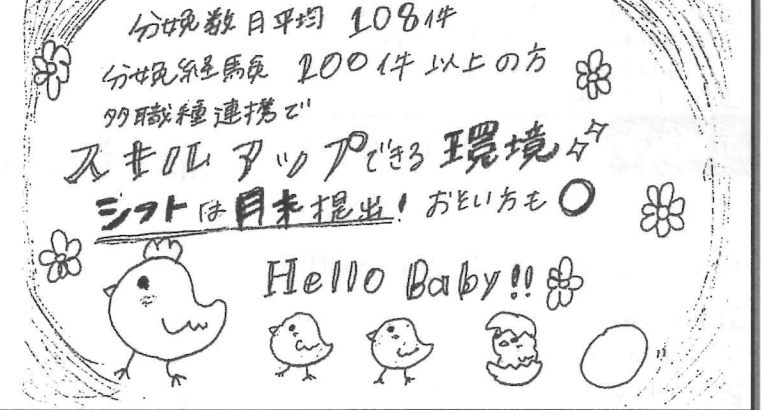 分娩数月平均 108件
分娩経験 100件以上の方
多職種連携で
スキルアップできる環境
シフトは月末提出! おそい方も〇
Hello Baby!!